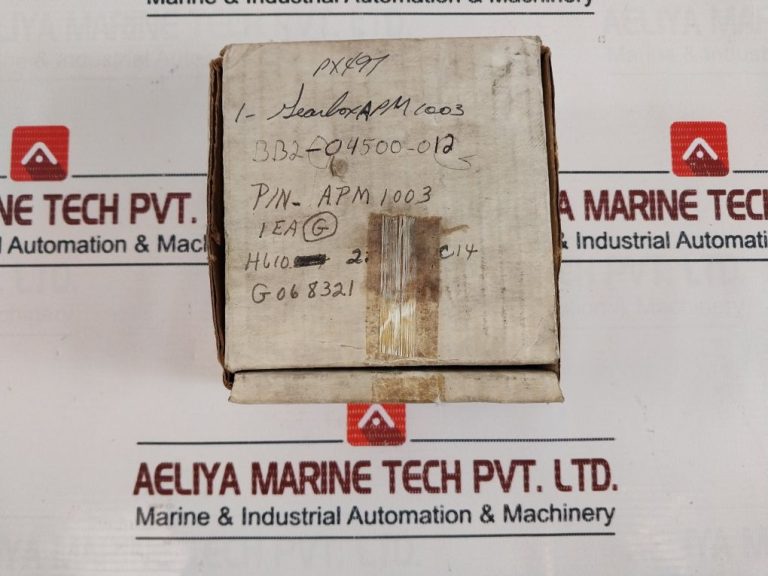 Marine & Industrial Automation & Machinery
PX497
1- Gearbox APM1003
BB2-04500-012
P/N- APM1003
1EA G
H610 2. C14
G068321
NE TECH PVT.
l Automation & Mach
A MARINE TECH
& Industrial Automation
AELIYA MARINE TECH PVT. LTD.
Marine & Industrial Automation & Machinery